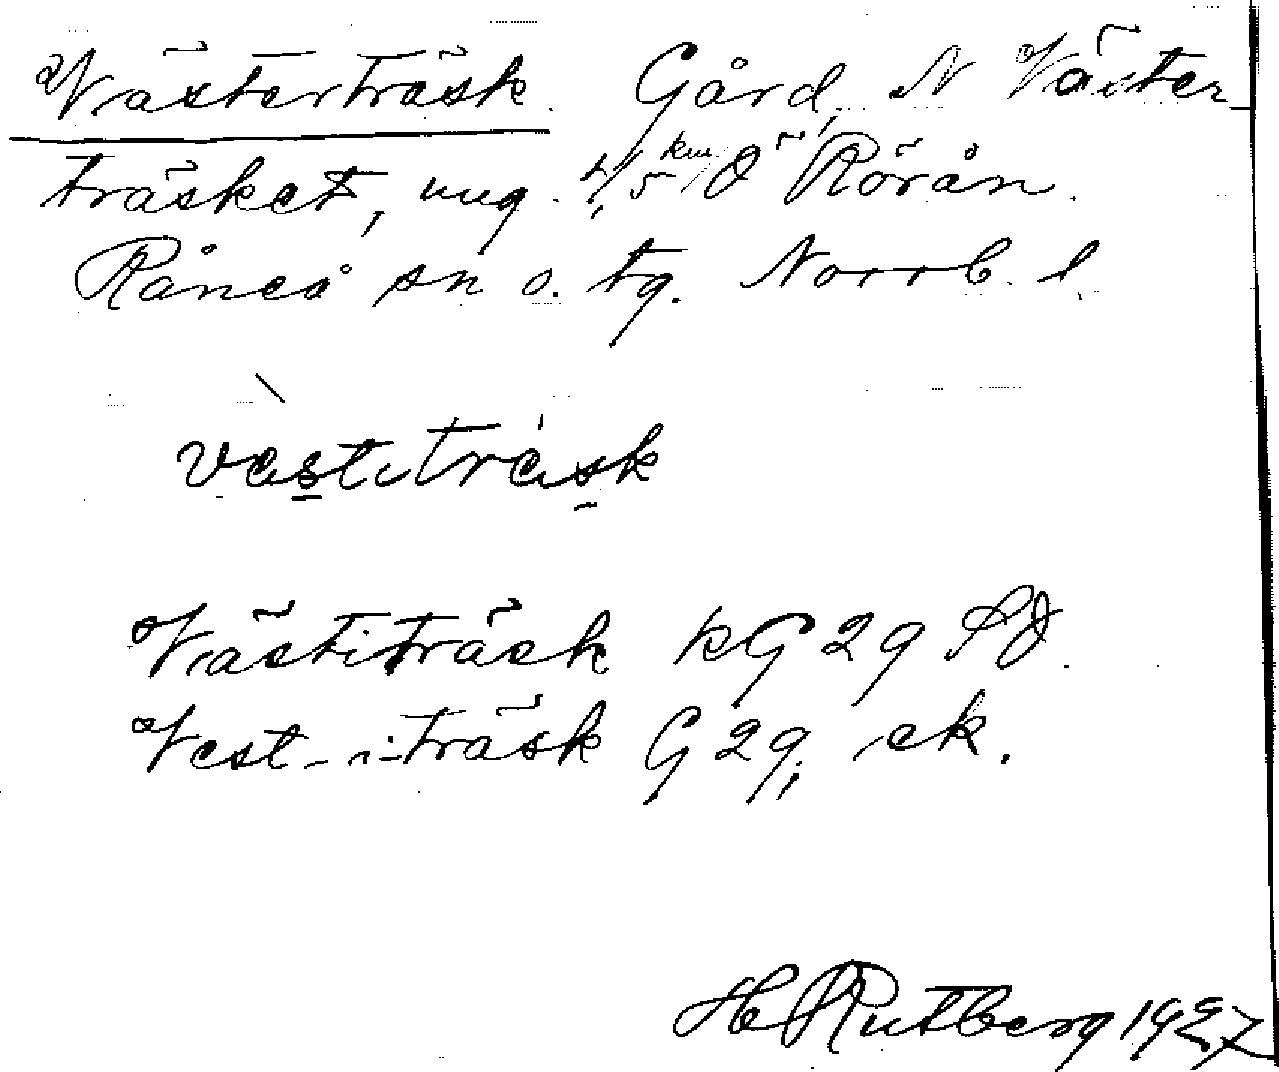 Västerträsk. Gård, N Väster-
träsket, ung. 4,5 km Ö Rörån.
Råneå sn o. tg. Norrb. l.
västiträsk
Västiträsk kG29
Vest-i-träsk G29, ek.
H Rutberg 1927